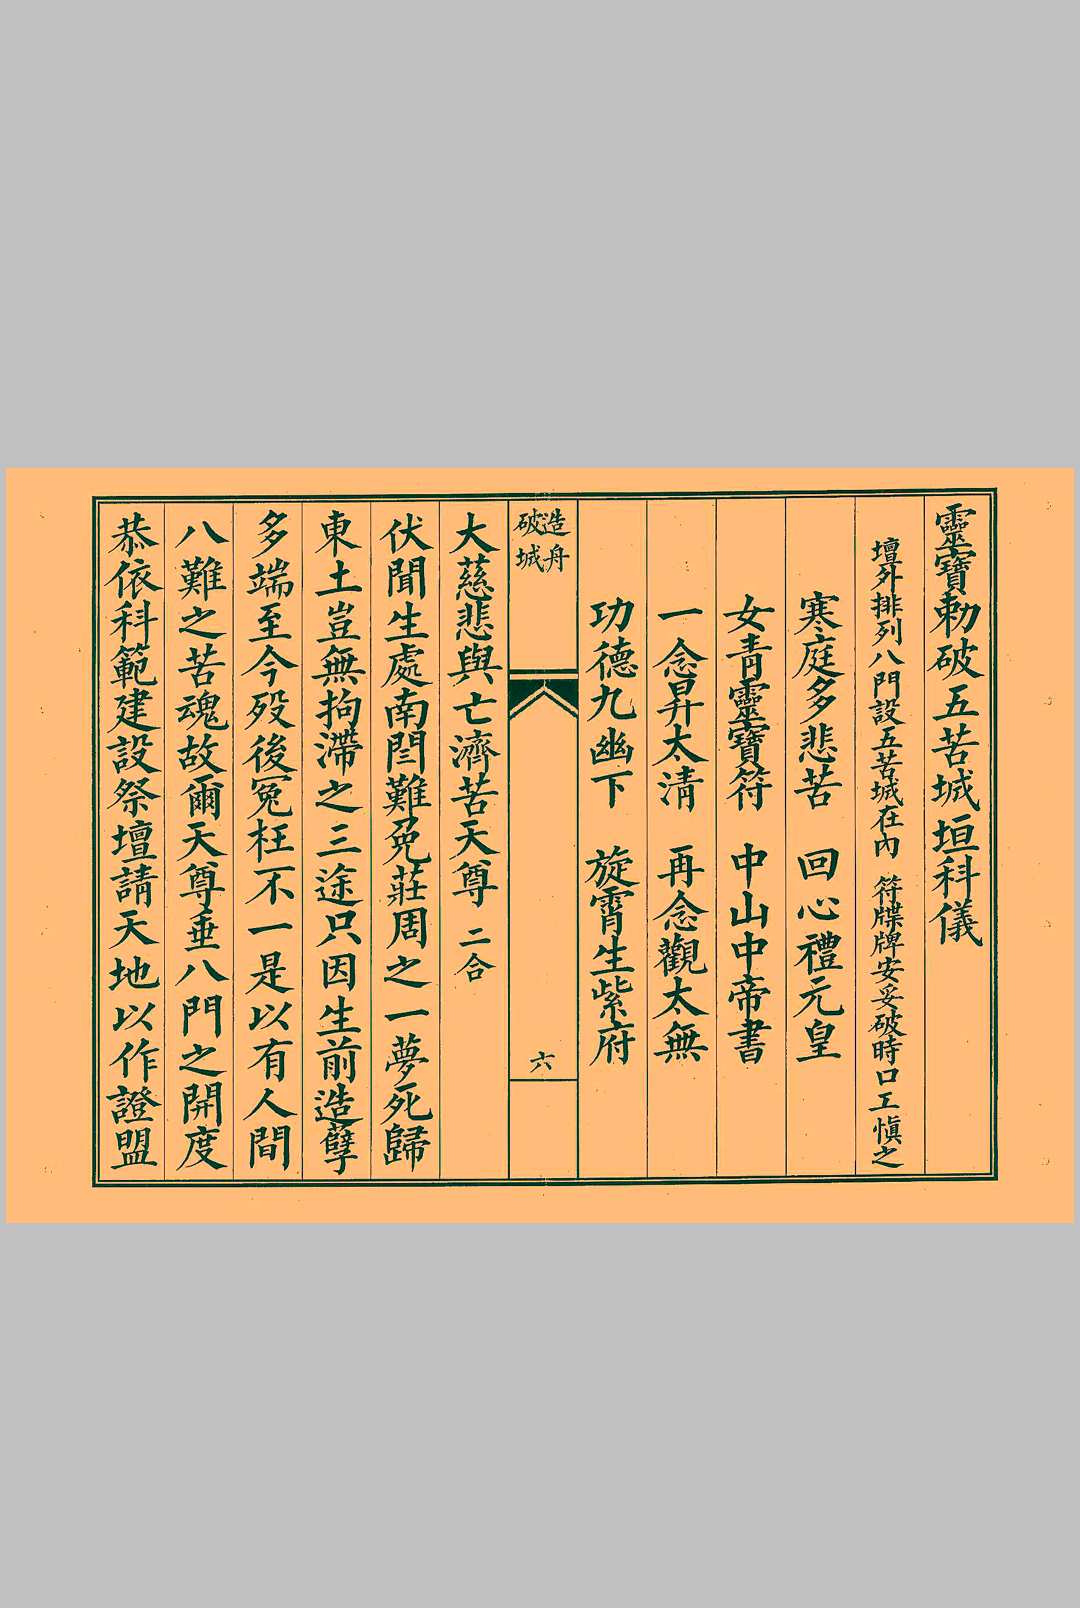 靈寶勅破五苦城垣科儀
壇外排列八門設五苦城在內 符牒牌安妥破時口工慎之
寒庭多悲苦 回心禮元皇
女青靈寶符 中山中帝書
一念昇太清 再念觀太無
功德九幽下 旋霄生紫府
造舟
破城
六
大慈悲與亡濟苦天尊 二合
伏聞生處南閆難免莊周之一夢死歸
東土豈無拘滯之三途只因生前造孽
多端至今歿後冤枉不一是以有人間
八難之苦魂故爾天尊垂八門之開度
恭依科範建設祭壇請天地以作證盟